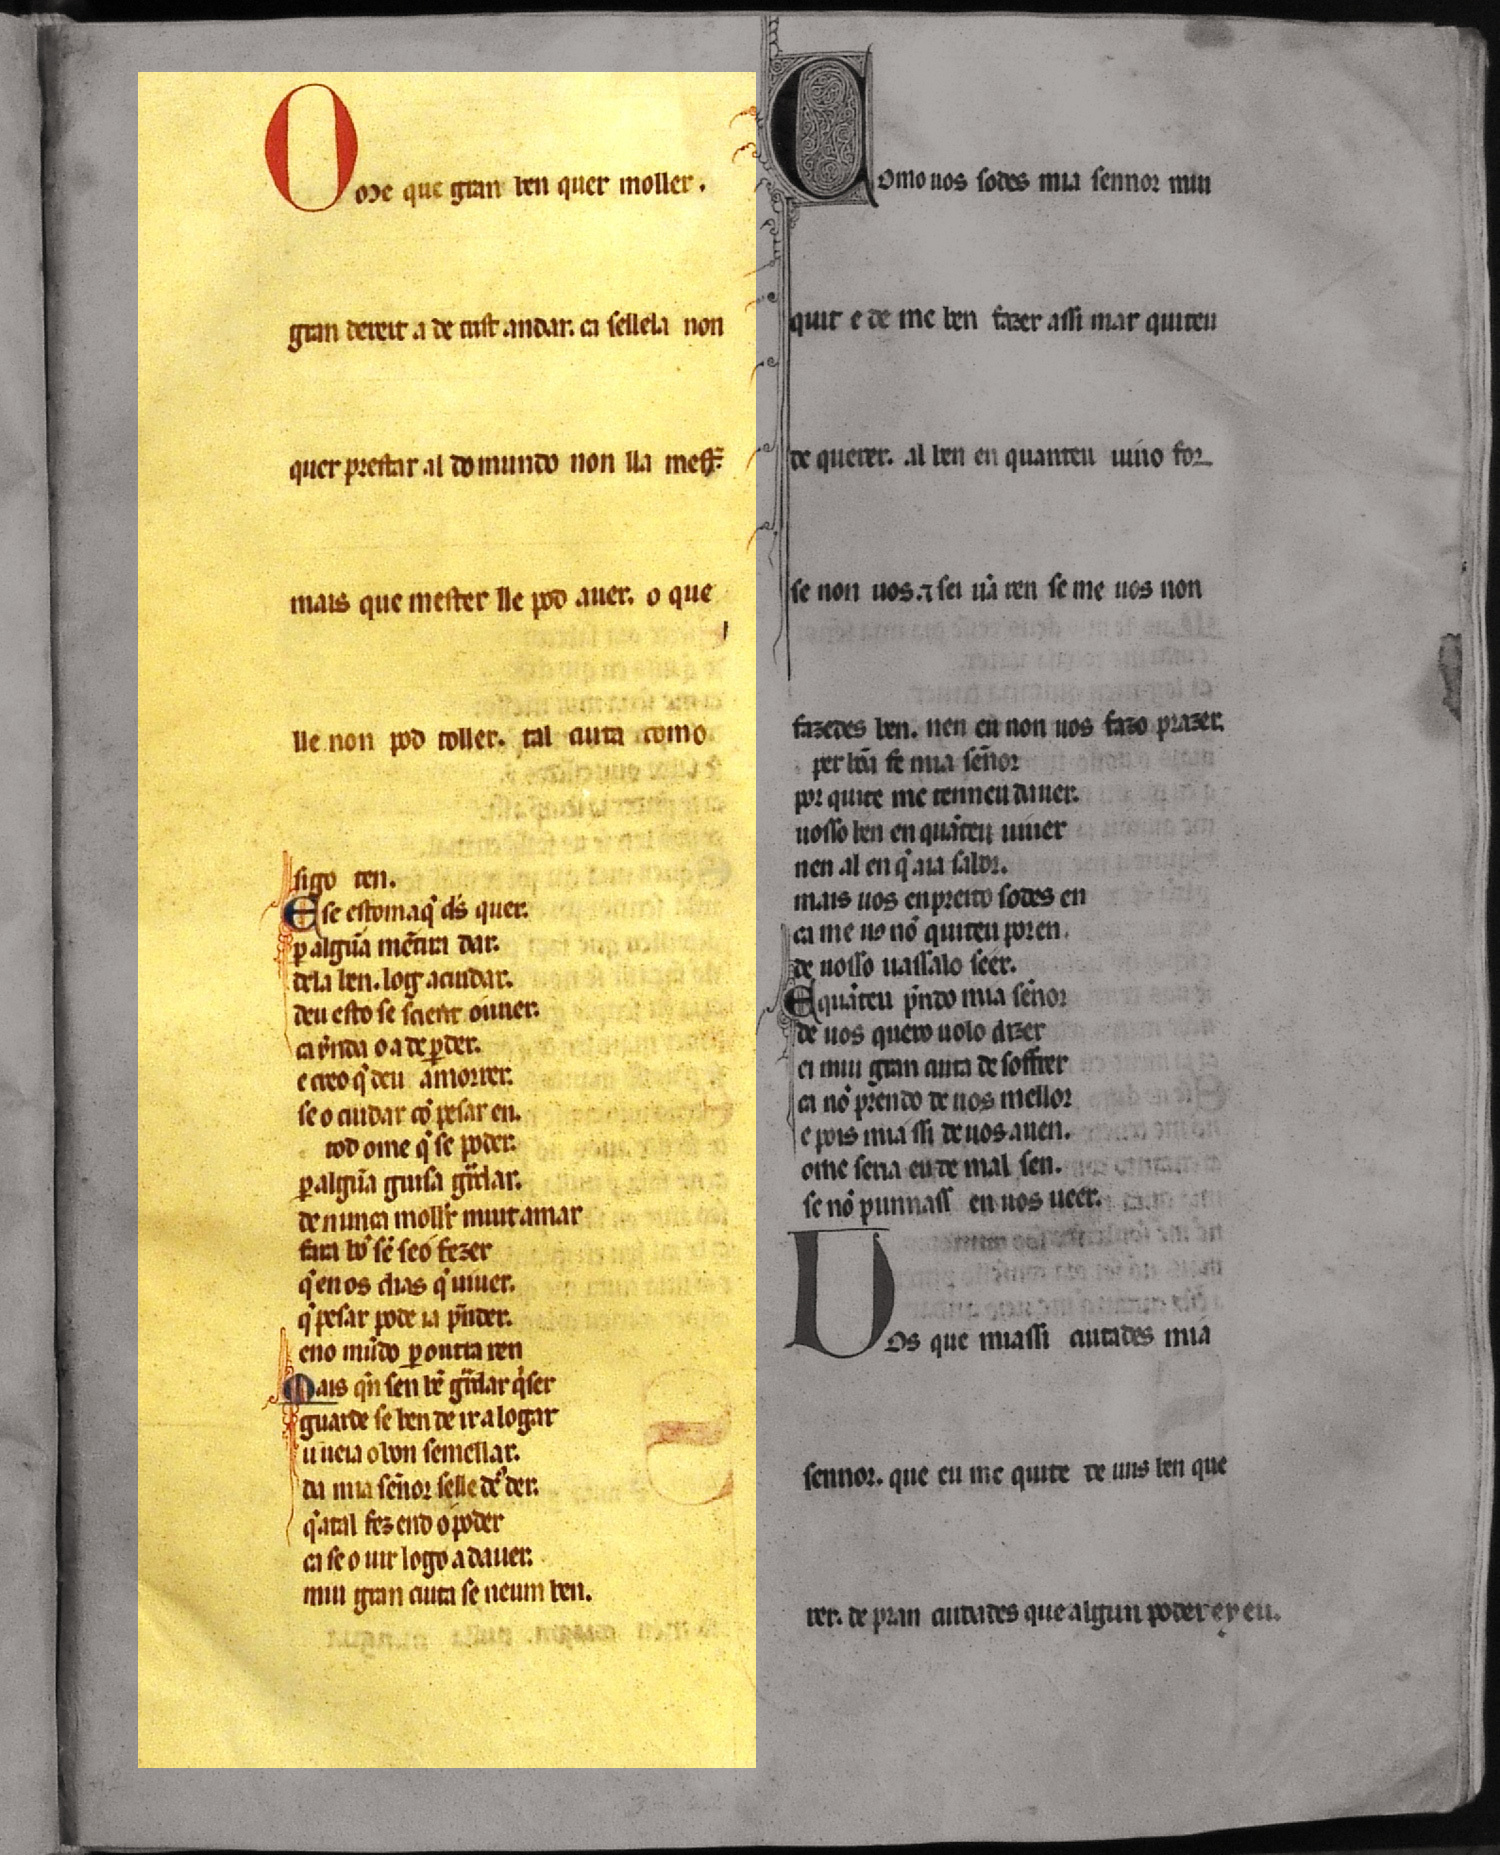 Ome que gran ben quer moller.
gran dereit a de trist andar. ca sellela non
quer prestar al do mundo non lla mest̃.
mais que mester lle pod auer. o que
lle non pod toller. tal cuita como
sigo ten.
E se est om a q̃ d̃s quer.
ꝑ algũa mẽtira dar.
dela ben. log a cuidar.
deu esto se sãent ouuer.
ca o a de ꝑder.
e creo q̃ deu a morrer.
se o cuidar cõ pesar en.
tod ome q̃ se poder.
ꝑ algũa guisa gardar.
de nunca moller muit amar
fara bõ sẽ se o fezer
q̃ en os dias q̃ uiuer.
q̃ pesar pode ia p̃nder.
eno mũdo ꝑ outra ren
Mais q̃n sen bẽ gardar q̃ser
guarde se ben de ir a logar
u ueia o bon semellar.
da mia sẽnor selle d̃s der.
q̃ atal fez end o poder
ca se o uir logo a dauer.
mui gran cuita se neum ben.
Como uos sodes mia sennor mui
quit e de me ben fazer assi mar quiteu
de querer. al ben en quanteu uiuo for
se non uos. ⁊ sei ũa ren se me uos non
fazedes ben. nen eu non uos fazo prazer.
per bõa fe mia sẽnor
por quite me tenneu dauer.
uosso ben en quãteu uiuer
nen al en q̃ aia sabor.
mais uos en preito sodes en
ca me uos nõ quiteu por en.
de uosso uassalo seer.
E quãteu p̃ndo mia sẽnor
de uos quero uolo dizer
ei mui gran cuita de soffrer
ca nõ prendo de uos mellor
e pois mia ssi de uos auen.
ome seria eu de mal sen.
se nõ punnass en uos ueer.
Uos que miassi cuitades mia
sennor. que eu me quite de uus ben que
rer. de pran cuidades que algun poder ey eu.